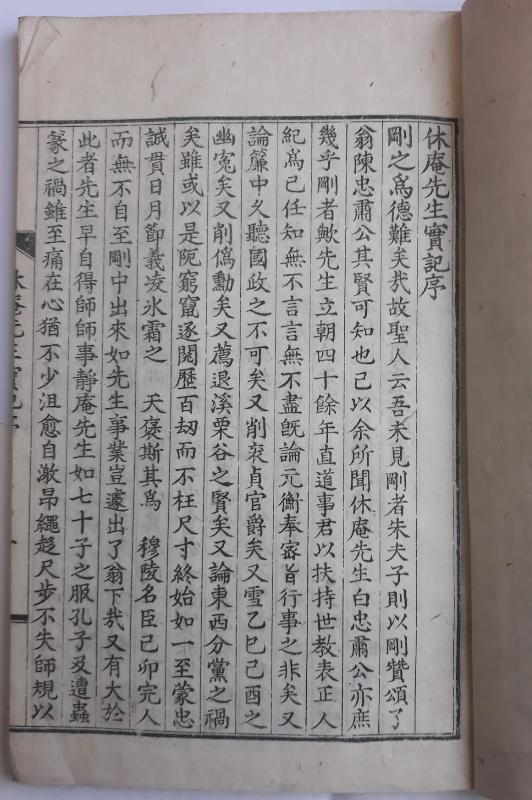 休庵先生實記序
剛之爲德難矣㢤故聖人云吾未見剛者朱夫子則以剛贊頌了
翁陳忠肅公其賢可知也已以余所聞休庵先生白忠肅公亦庶
幾乎剛者歟先生立朝四十餘年直道事君以扶持世教表正人
紀爲己任知無不言言無不盡旣論元衡奉密旨行事之非矣又
論簾中久聽國政之不可矣又削衮貞官爵矣又雪乙巳己酉之
幽寃矣又削僞勳矣又薦退溪栗谷之賢矣又論東西分黨之禍
矣雖或以是阨窮竄逐閱歷百刼而不枉尺寸終始如一至蒙忠
誠貫日月節義凌氷霜之 天褒斯其爲 穆陵名臣己卯完人
而無不自至剛中出來如先生事業豈遽出了翁下㢤又有大於
此者先生早自得師師事靜庵先生如七十子之服孔子及遭蟲
篆之禍雖至痛在心猶不少沮愈自激昂繩趍尺步不失師規以
休庵先生實記序